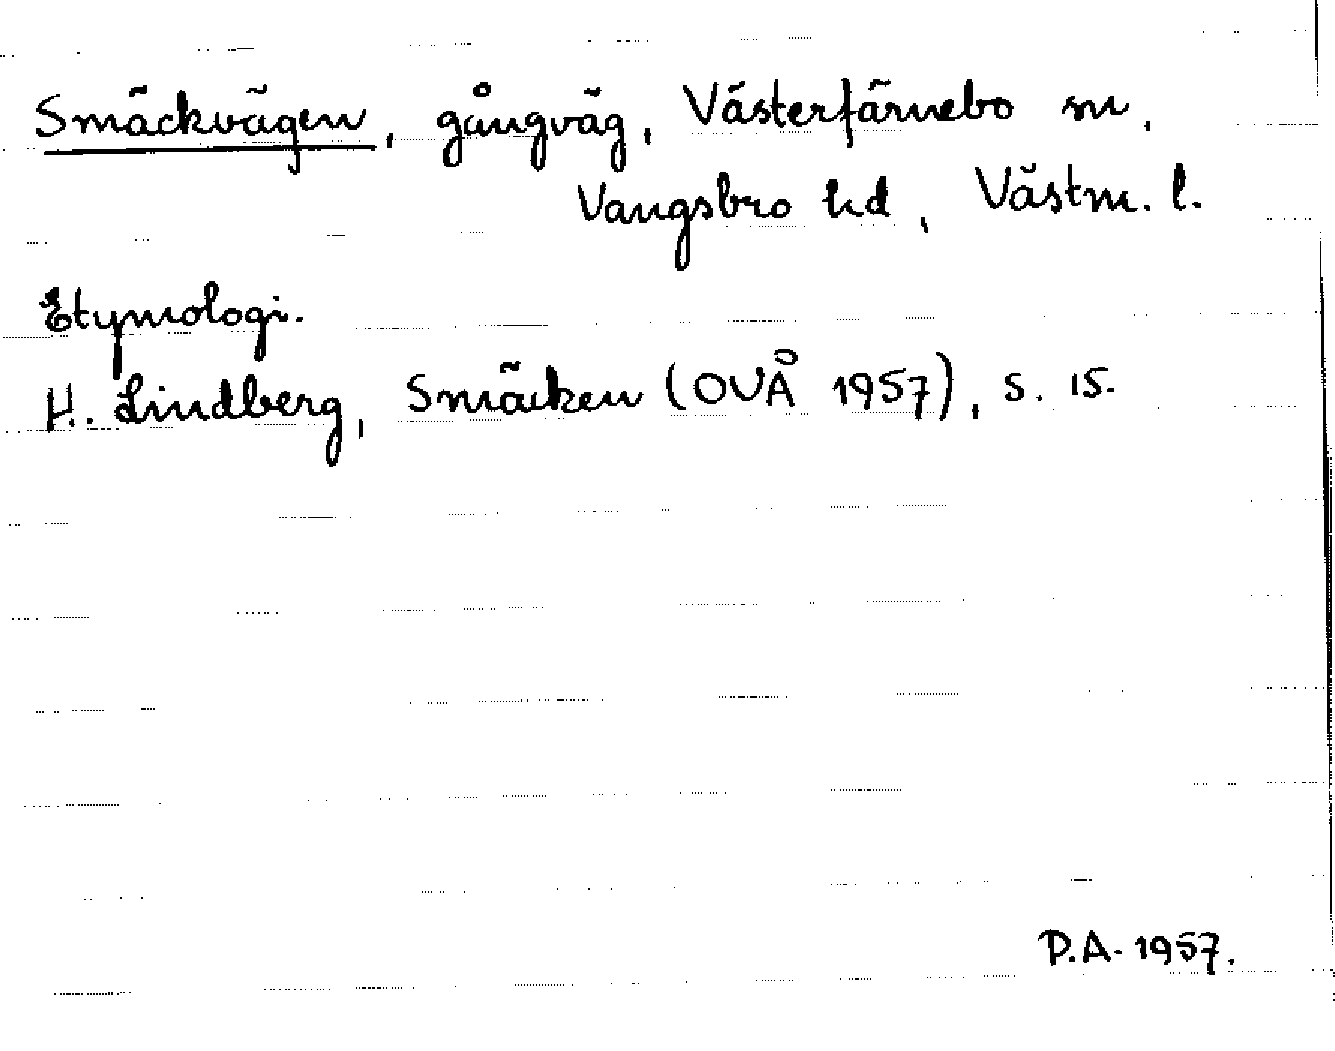 Smäckvägen, gångväg, Västerfärnebo sn,
Vangsbro hd, Västm. l.
Etymologi.
H. Lindberg, Smäcken (OVÅ 1957), s. 15.
P.A. 1957.